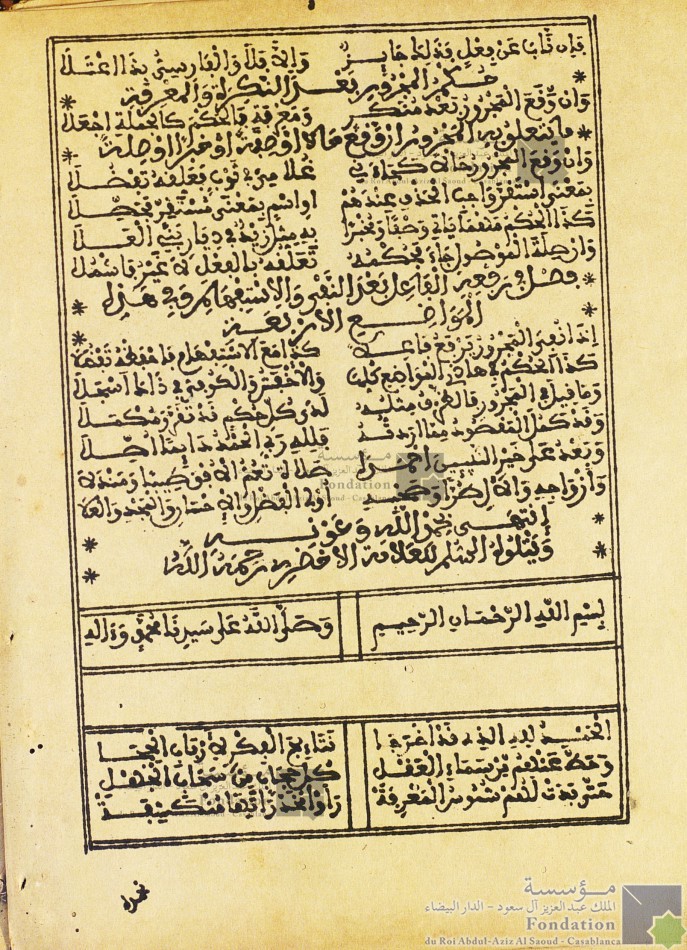 فإن ناب عن فعل فذلك جايز وإلا فلا والفارسي بذا اعتلا
حكم المجرور بعد النكرة والمعرفة
وان وقع المجرور بعد منكر ومعرفة فالحكم كالجملة اجعلا
ما يتعلق به المجرور ان وقع حالا او صفة او خبرا او صلة
وان وقع المجرور حالا كجاء في
بمعنى استقر واجب الحذف عندهم او اسم بمعنى مستقر
كذا الحكم
وان صلة الموصول جاء فحكمه تعلقه بالفعل لا غير فاشملا
فصل في رفعه الفاعل بعد النفي والاستفهام وفي هذه
المواضع الاربعة
اذا نفي المجرور يرفع فاعلا كذا مع الاستفهام
كذا الحكم في المواضع كلها والاخفش والكوفي في ذا
وما قيل في المجرور قالظرف مثله لدى كل حكم قد تقرر مكملا
وقد كمل المقصود مما اردته فلله ربي الحمد دايما
وبعد على خير النبيين احمد صلاة تعم الافق طيبا ومندلا
وازواجه والال طرا وصحبه اولي الفضل والاحسان والمجد والعلا
انتهى بحمد الله وعونه
ويتلوه السلم للعلامة الاخضري رحمه الله
بسم الله الرحمان الرحيم وصلى الله على سيدنا محمد وءاله
الحمد لله الذي قد أخرجا نتايج الفكر لأرباب الحجا
وحط عنهم من سماء العقل كل حجاب من سحاب الجهل
حتى بدت لهم شموس المعرفة رأوا مخدراتها منكشفة
نحمده
مؤسسة
الملك عبد العزيز آل سعود - الدار البيضاء
Fondation
du Roi Abdul-Aziz Al Saoud - Casablanca